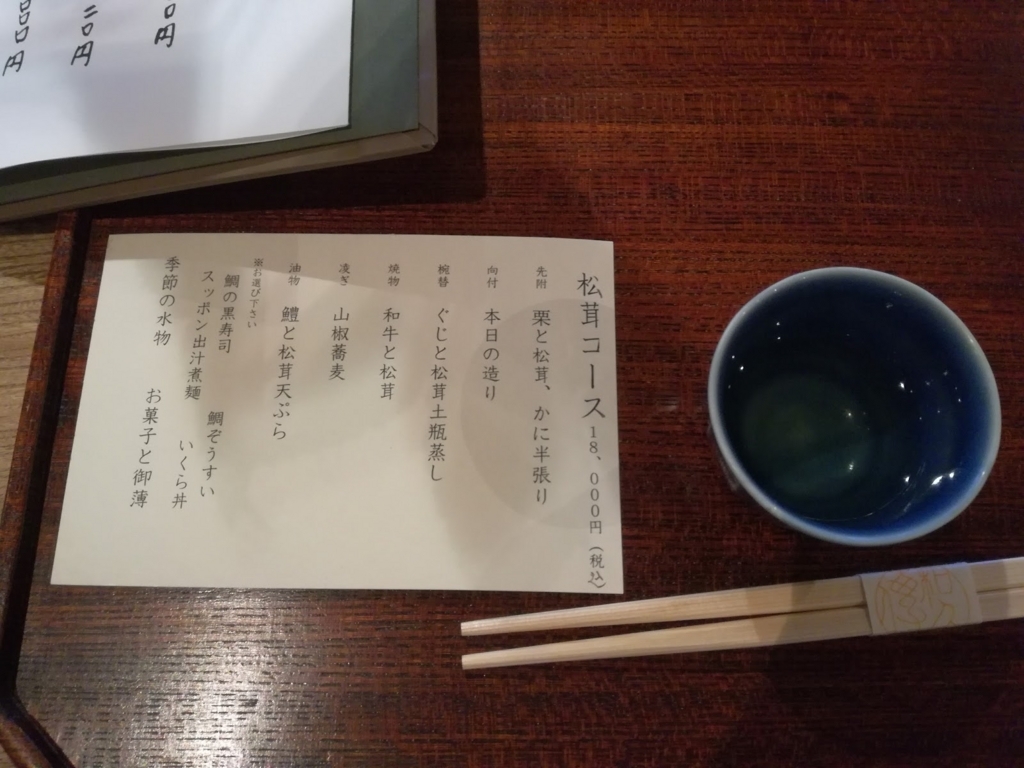 松茸コース 18、000円（税込）
先附 栗と松茸、かに半張り
向付 本日の造り
椀替 ぐじと松茸土瓶蒸し
焼物 和牛と松茸
凌ぎ 山椒蕎麦
油物 鱧と松茸天ぷら
※お選び下さい
鯛の黒寿司 鯛ぞうすい
スッポン出汁煮麺 いくら丼
季節の水物 お菓子と御薄
0円
二0円
000円